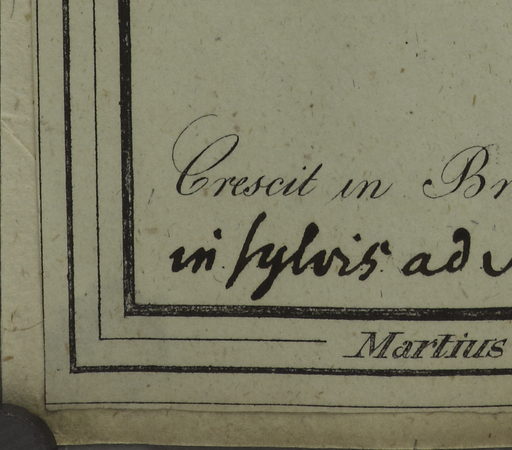 Crescit in Br
in sylvis ad
Martius